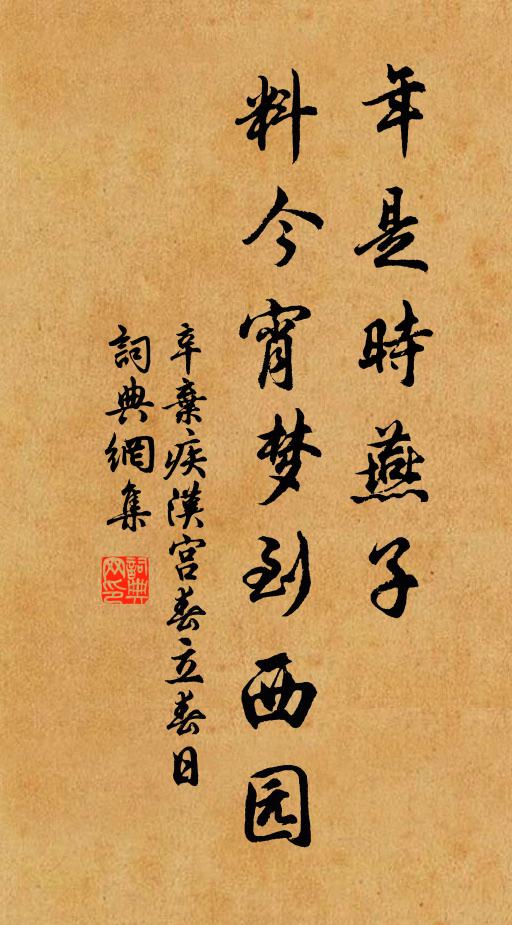 年是時燕子
料今宵梦到西园
辛棄疾漢宮春立春日
詞典網集
詞典网印